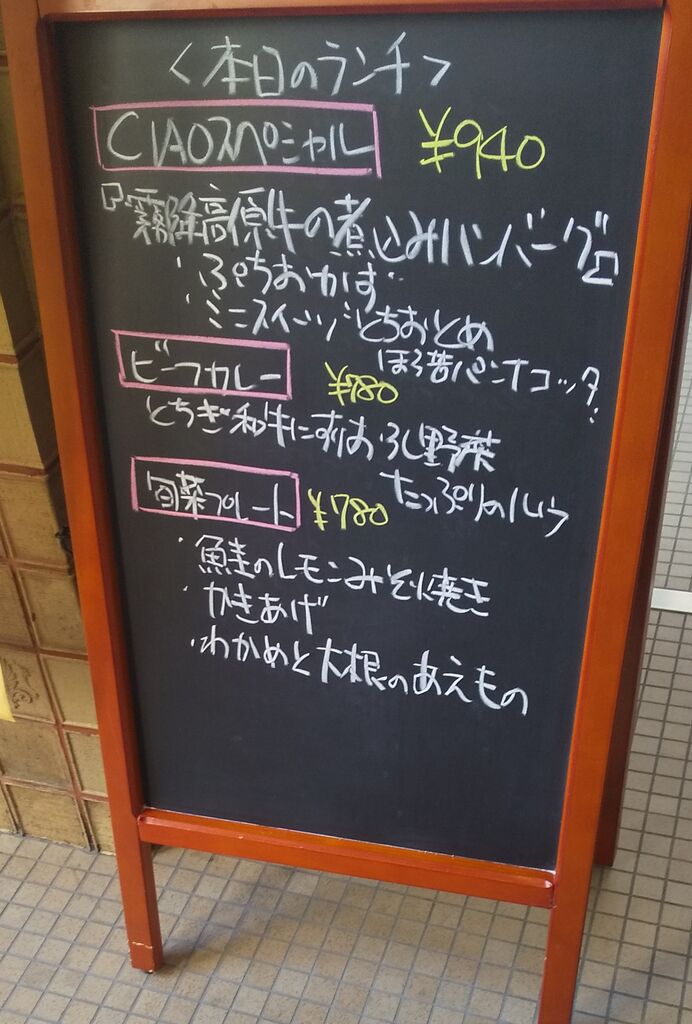 <本日のランチ>
CIAOスペシャル ¥940
『霧降高原牛の煮込みハンバーグ』
・ぷちおかず
・ミニスイーツ とちおとめ
ほろ苦パンナコッタ
ビーフカレー ¥780
とちぎ和牛にすりおろし野菜
たっぷりのルウ
旬菜プレート ¥780
・鮭のレモンみそ焼き
・かきあげ
・わかめと大根のあえもの